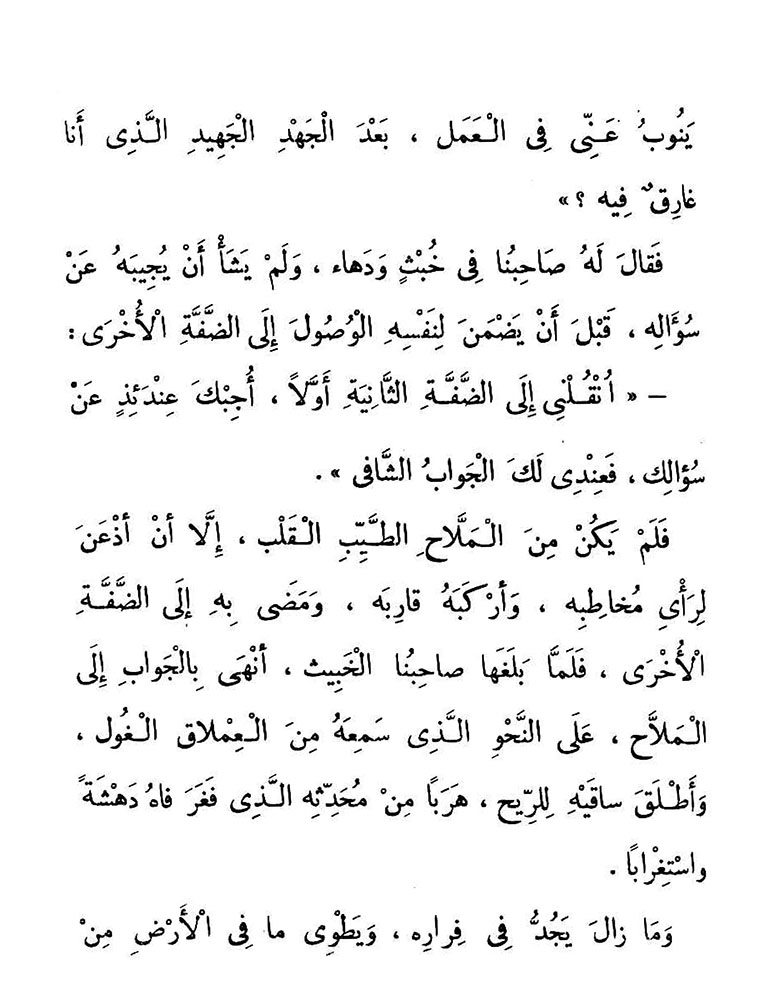 يَنُوبُ عَنِّى فِى الْعَمَل ، بَعْدَ الْجَهْدِ الْجَهِيدِ الَّذِى أَنا
غارِقٌ فِيه ؟ »
فَقالَ لَهُ صَاحِبُنا فِى خُبْثٍ وَدَهاء ، وَلَمْ يَشَأْ أَنْ يُجِيبَهُ عَنْ
سُؤَالِه ، قَبْلَ أَنْ يَضْمَنَ لِنَفْسِهِ الْوُصُولَ إِلَى الضَّفَّةِ الْأُخْرَى :
– « اُنْقُلْنِى إِلَى الضَّفَّةِ الثَّانِيَةِ أَوَّلاً ، أُجِبْكَ عِنْدَئِذٍ عَنْ
سُؤالِك ، فَعِنْدِى لَكَ الْجَوابُ الشَّافى » .
فَلَمْ يَكُنْ مِنَ الْمَلَّاحِ الطَّيِّبِ الْقَلْب ، إِلَّا أنْ أذْعَنَ
لِرَأْىِ مُخاطِبِه ، وَأرْكَبَهُ قارِبَه ، وَمَضَى بِهِ إِلَى الضَّفَّةِ
الْأُخْرَى ، فَلَمَّا بَلَغَها صاحِبُنا الْخَبِيث ، أنْهَى بِالْجَوابِ إِلَى
الْمَلاَّح ، عَلَى النَّحْوِ الَّذِى سَمِعَهُ مِنَ الْعِمْلاقِ الْغُول ،
وَأَطْلَقَ ساقَيْهِ لِلرِّيح ، هَرَبًا مِنْ مُحَدِّثِه الَّذِى فَغَرَ فاهُ دَهْشَةً
واسْتِغْرابًا .
وَمَا زالَ يَجُدُّ فِى فِرارِه ، وَيَطْوِى ما فِى الْأَرْضِ مِنْ